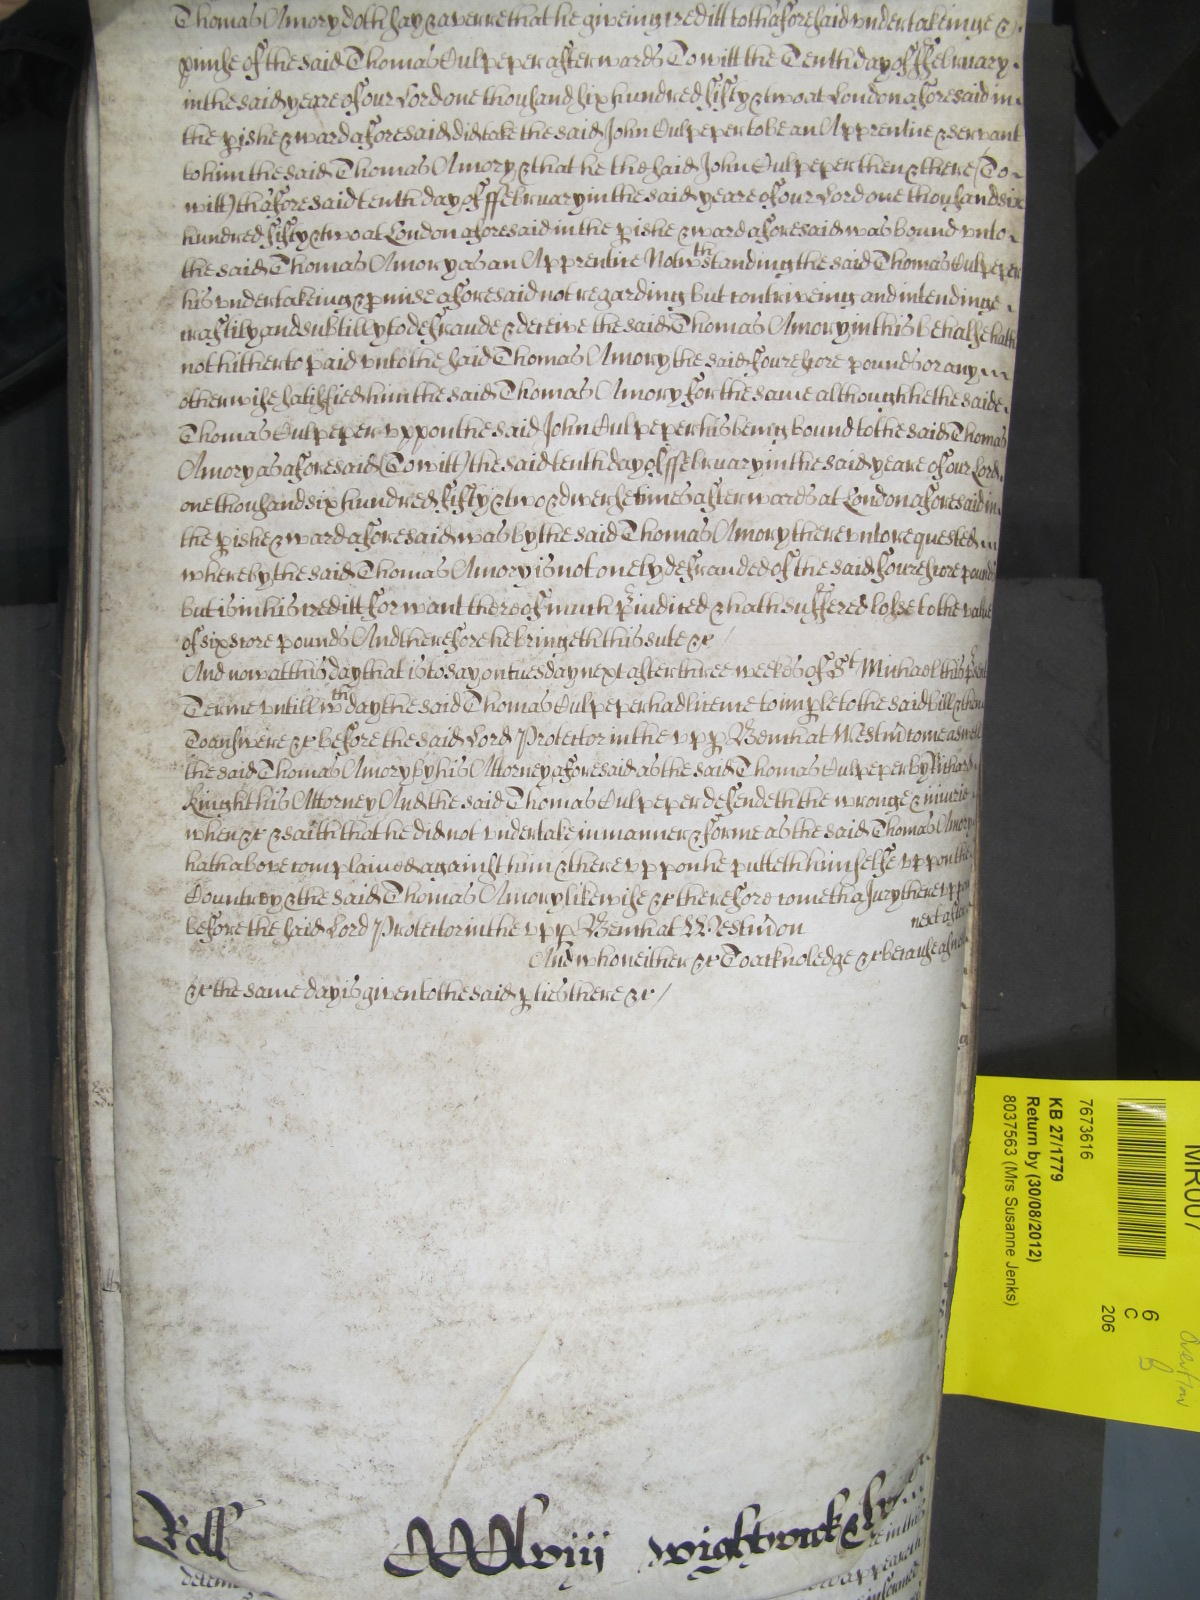 Thomas Amory doth say & averre that he giveing creditt to thaforesaid undertakeinge &
pmise of the said Thomas Culpeper afterwards To witt the Tenth day of ffebruary
in the said yeare of our Lord one thousand six hundred fifty & two at London aforesaid in
the pishe & ward aforesaid did take the said John Culpeper to be an Apprentice & servant
to him the said Thomas Amory & that he the said John Culpeper then & there (To
witt) thaforesaid tenth day of ffebruary in the said yeare of our Lord one thousand six
hundred fifty & two at London aforesaid in the pishe & ward aforesaid was bound unto
the said Thomas Amory as an Apprentice Notwthstanding the said Thomas Culpeper
his undertakeing & pmise aforesaid not regarding but contriveing and intendinge
craftily and subtilly to defraude & deceive the said Thomas Amory in this behalfe hath
not hitherto paid unto the said Thomas Amory the said fourescore pounds or any
otherwise satisfied him the said Thomas Amory for the same although he the saide
Thomas Culpeper uppon the said John Culpeper his being bound to the said Thomas
Amory as aforesaid (To witt) the said tenth day of ffebruary in the said yeare of our Lord
one thousand six hundred fifty & two & diverse times afterwards at London aforesaid in
the pishe & ward aforesaid was by the said Thomas Amory thereunto requested
whereby the said Thomas Amory is not onely defrauded of the said fourescore pounds
but is in his creditt for want thereof much piudiced & hath suffered losse to the value
of six score pounds And therefore he bringeth this sute &c /
And now at this day that is to say on tuesday next after three weekes of St Michael this psent
Terme untill wth day the said Thomas Culpeper had licence to imple to the said bill & then
To answere &c before the said Lord Protector in the upp Bench at Westm come aswell
the said Thomas Amory by his Attorney aforesaid as the said Thomas Culpeper by Richard
Knight his Attorney And the said Thomas Culpeper defendeth the wronge & iniurie
when &c & saith that he did not undertake in manner & forme as the said Thomas Amory
hath above complained against him & thereuppon he putteth himselfe uppon the
Country & the said Thomas Amory likewise &c therefore come tha Jury thereuppon
before the said Lord Protector in the upp Bench at Westm on next after
And who neither &c To acknoledge &c because aswell
&c the same day is given to the said pties there &c /
Roll CCCClviii wightwick &
MR007
6
C
206
Overflow
7673616
KB 27/1779
Return by (30/08/2012)
8037563 (Mrs Susanne Jenks)